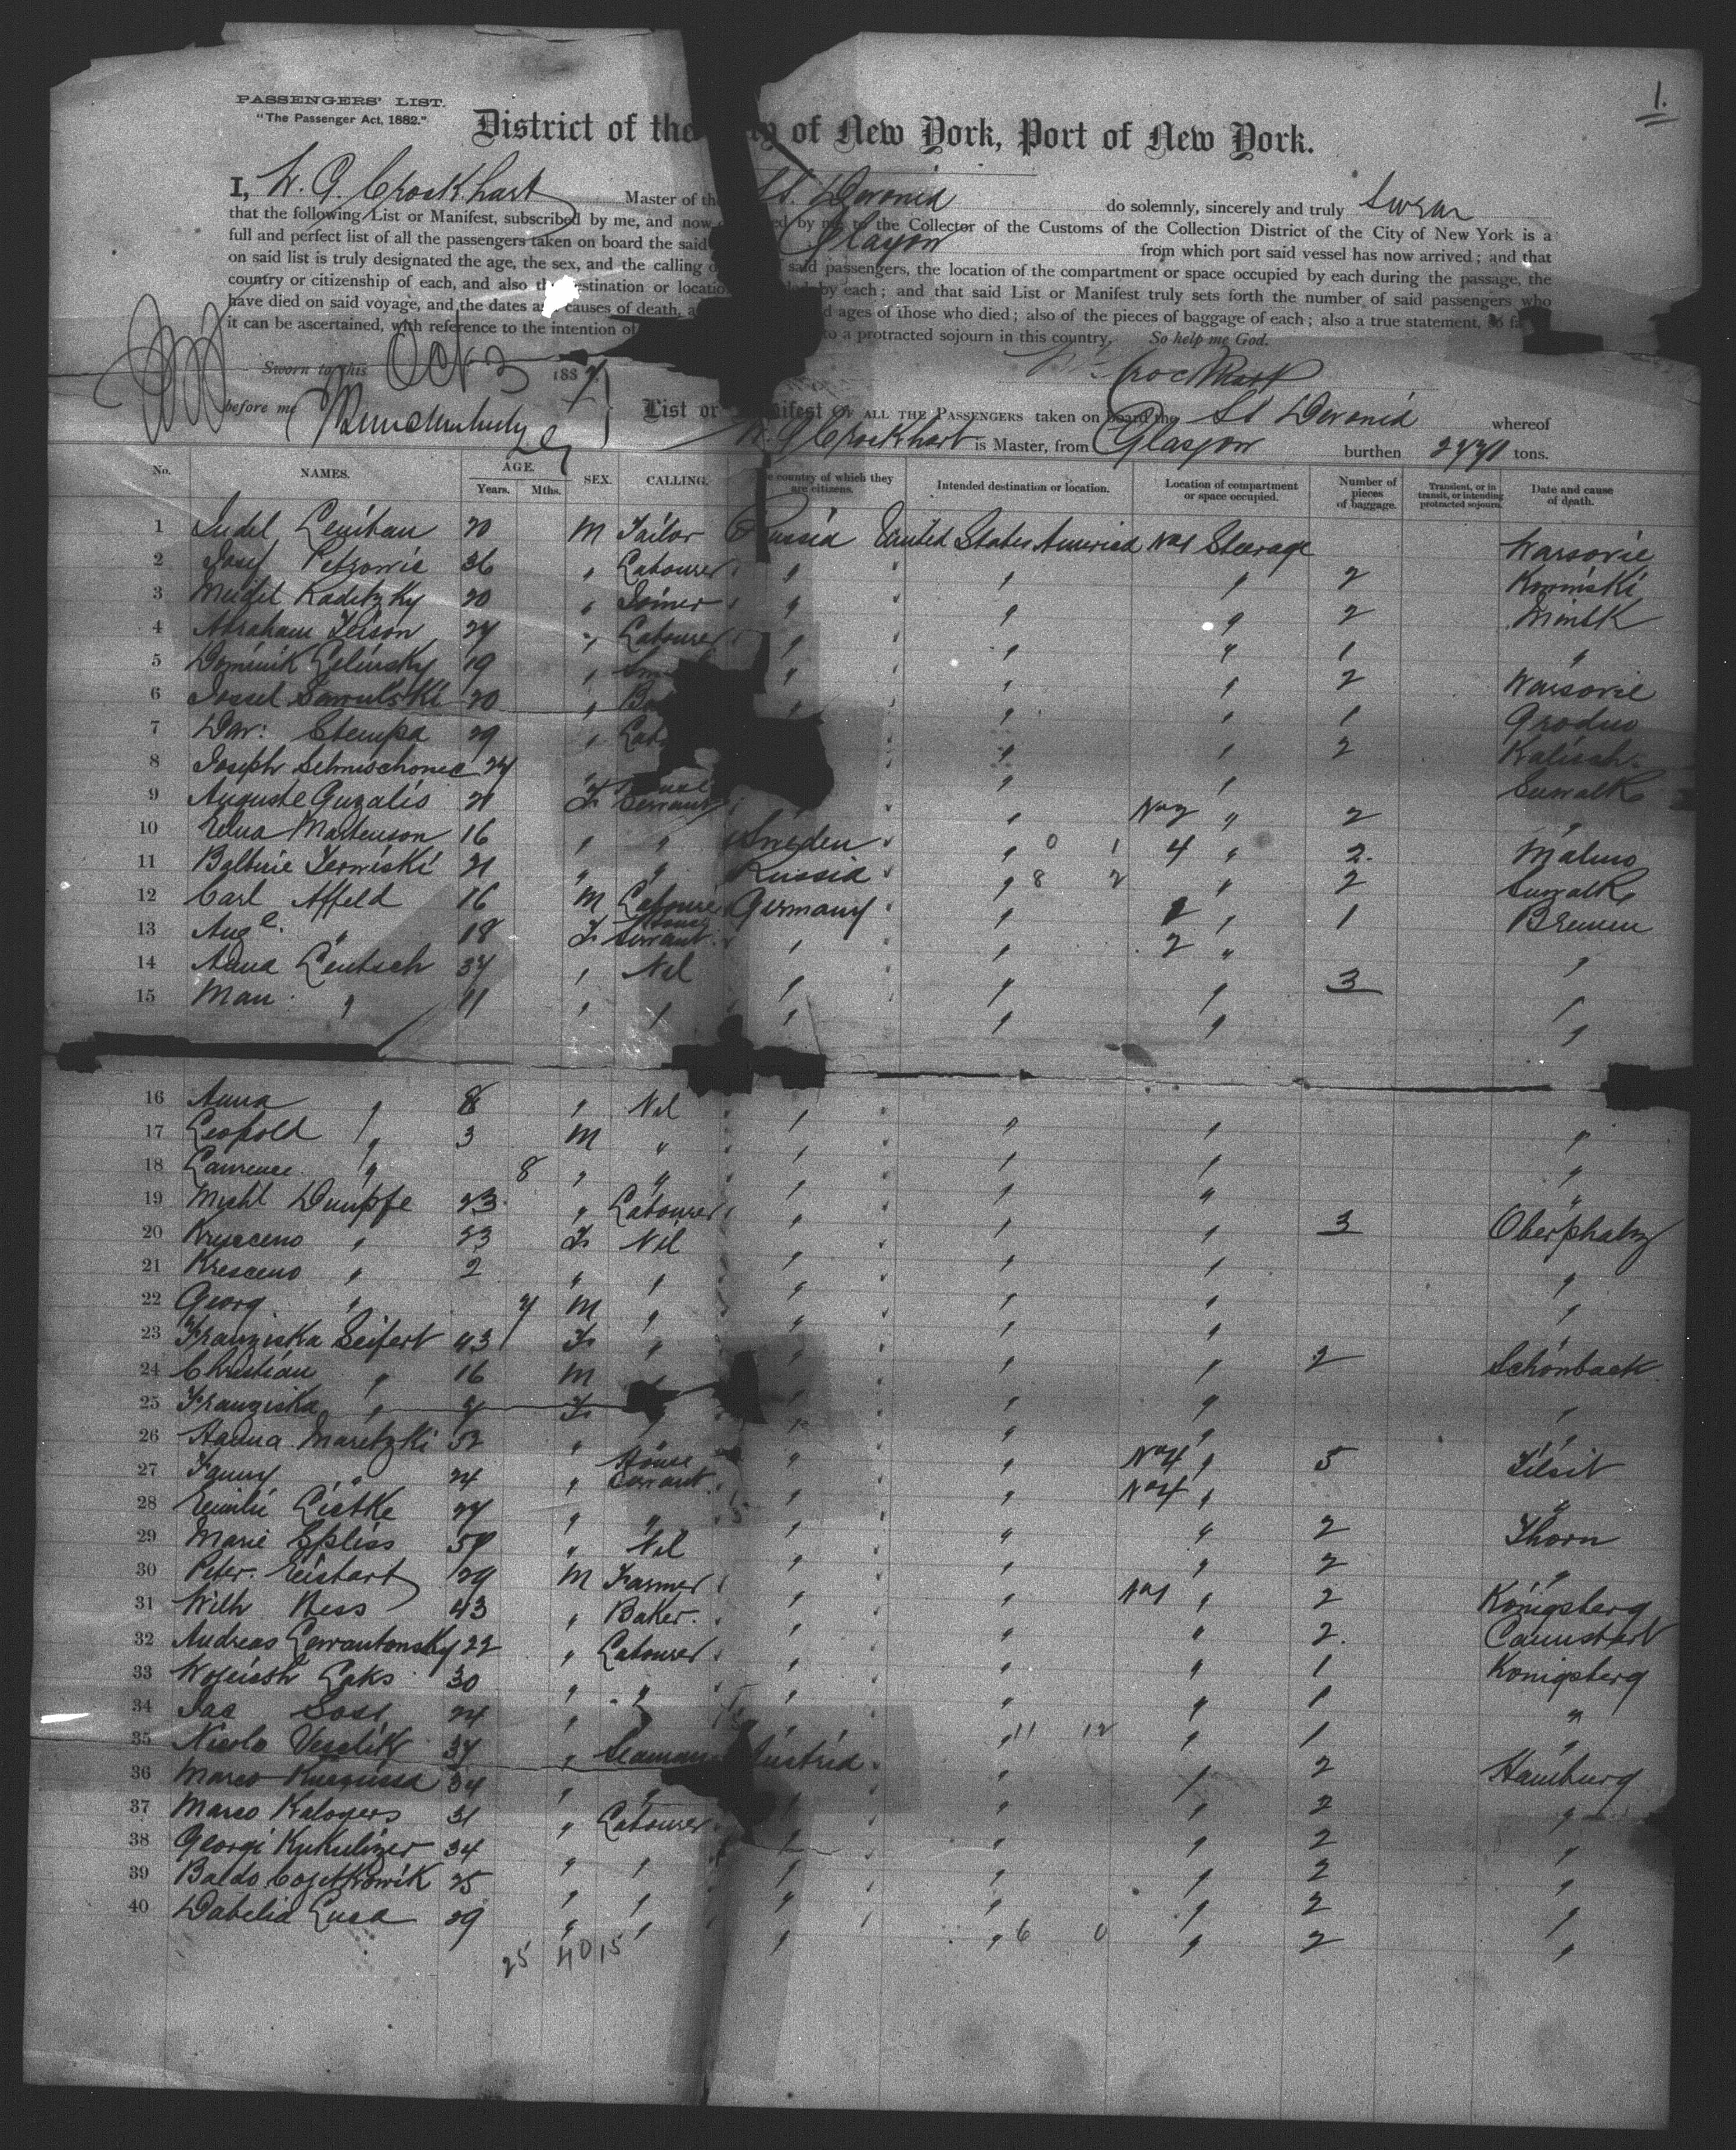 1.
PASSENGERS' LIST.
"The Passenger Act, 1882."
District of the City of New York, Port of New York.
I, W. G. Crockhart Master of the St. Devonia do solemnly, sincerely and truly Swear
that the following List or Manifest, subscribed by me, and now by me to the Collector of the Customs of the Collection District of the City of New York is a
full and perfect list of all the passengers taken on board the said Glasgow from which port said vessel has now arrived; and that
on said list is truly designated the age, the sex, and the calling of said passengers, the location of the compartment or space occupied by each during the passage, the
country or citizenship of each, and also the destination or location by each; and that said List or Manifest truly sets forth the number of said passengers who
have died on said voyage, and the dates and causes of death, and ages of those who died; also of the pieces of baggage of each; also a true statement, so far
it can be ascertained, with reference to the intention of to a protracted sojourn in this country. So help me God.
Sworn to this Oct 3 1887
before me
List or Manifest OF ALL THE PASSENGERS taken on board the St Devonia whereof
W. G Crockhart is Master, from Glasgow burthen tons.
No. NAMES. AGE. Years. Mths. SEX. CALLING. The country of which they are citizens. Intended destination or location. Location of compartment or space occupied. Number of pieces of baggage. Transient, or in transit, or intending protracted sojourn. Date and cause of death.
1 Judel 20 M Tailor Russia United States America No1 Steerage Warsovie
2 Josef Petrowic 36 " Labourer " " " 2
3 Kaditzky 20 " Joiner " " " 2 Minsk
4 Abraham 27 " Labourer " " " 1 "
5 Dominik Celinsky 19 " " " " 2 Warsovie
6 Jossel 20 " " " " 1 Grodno
7 Dav: Stempa 29 " " " " 2 Kalisch
8 Joseph 27 " " " Suwalk
9 Auguste Guzalis 21 F Servant " " No2 " 2 "
10 Edna Martenson 16 " " Sweden " 0 1 4 " 2. Malmo
11 21 " " Russia " 8 2 " 2 Suwalk
12 Carl Affeld 16 M Labourer Germany " 1 " 1 Bremen
13 Auge. " 18 F House Servant " " 2 " "
14 Anna Lentsch 37 " Nil " " " 3 "
15 " 11 " " " " " "
16 Anna " 8 " Nil " " " "
17 Leopold " 3 M " " " " "
18 Laurence " 8 " " " " " "
19 Michl Dumpfe 23 " Labourer " " " 3 Oberphalz
20 " 23 F Nil " " " "
21 Kresceno " 2 " " " " " "
22 Georg " 7 M " " " " "
23 Franziska Seifert 43 F " " " " 2 Schönback
24 Christian " 16 M " " " " "
25 Franziska " 9 F " " " " "
26 Hanna Maretzki 52 " " " No4 " 5 Tilsit
27 Fanny " 24 " House Servant " " No4 " "
28 Emilie Liethe 27 " " " " " 2 Thorn
29 Marie Epliss 59 " Nil " " " 2 "
30 Peter 29 M Farmer " " No1 " 2 Königsberg
31 Wilh Hess 43 " Baker. " " " 2. Cannstart
32 Andreas 22 " Labourer " " " 1 Königsberg
33 Laks 30 " " " " " 1 "
34 Jac 24 " " " " 11 12 " 1 "
35 Nicolo Veselik 37 " Seaman Austria " " 2 Hamburg
36 Marco 34 " " " " " 2 "
37 Marco Kalogers 31 " Labourer " " " 2 "
38 Georgi Kukulizer 34 " " " " " 2 "
39 Baldo 25 " " " " " 2 "
40 Dabelia Luca 29 " " " " 6 0 " 2 "
25 40 15